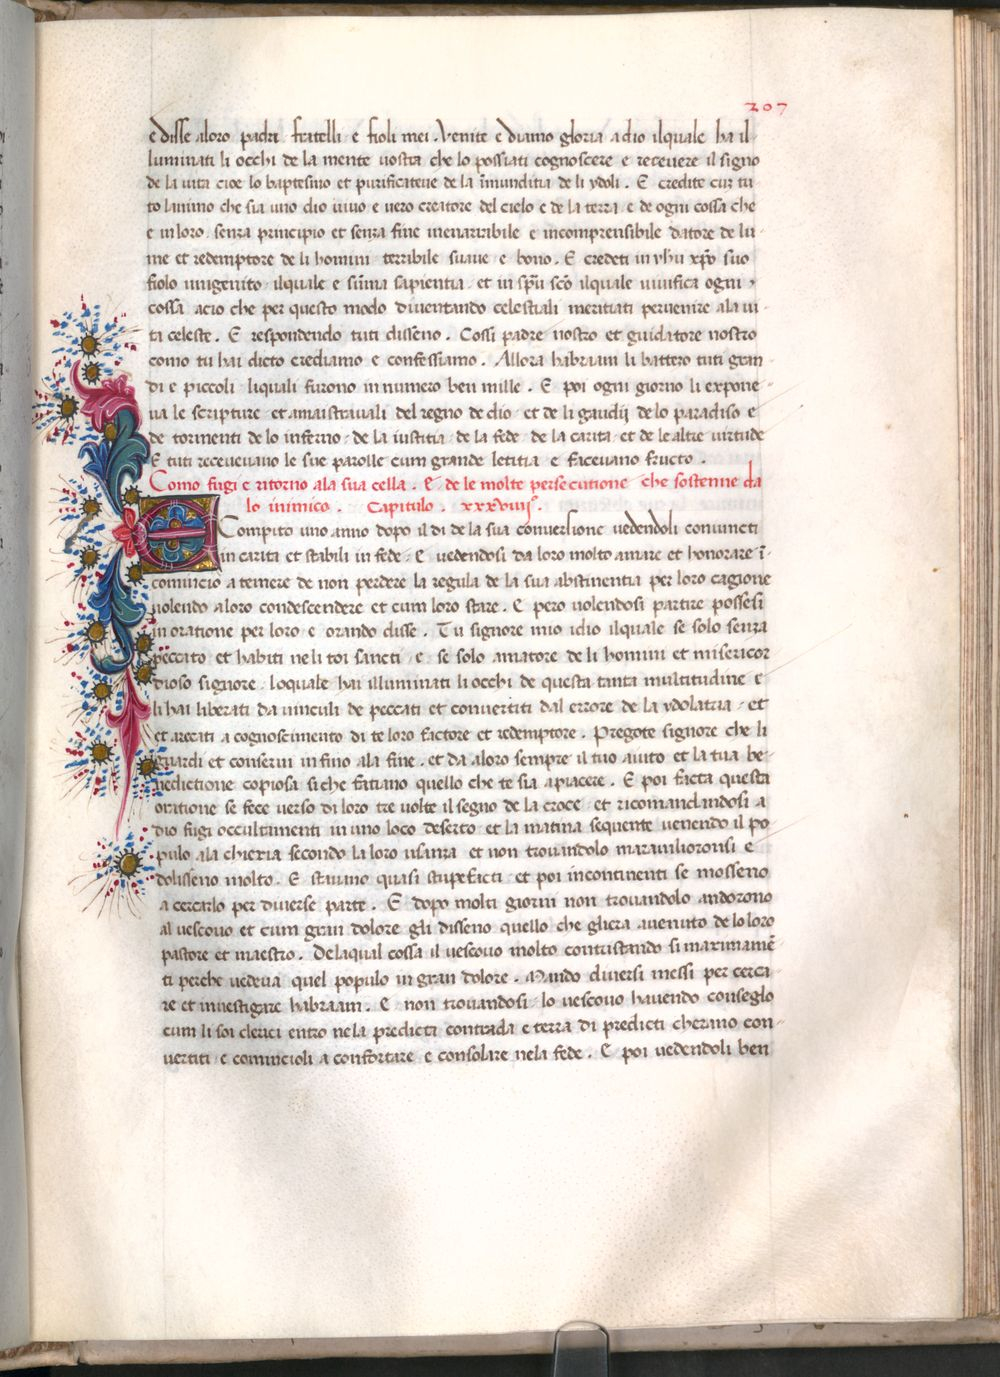 207
e disse aloro padri fratelli e fioli mei . Venite e diamo gloria a dio ilquale ha il
luminati li occhi de la mente uostra che lo possiati cognoscere e receuere il signo
de la uita cioe lo baptesmo et purificateue de la īmunditia de li ydoli . E credite cur tu
to lanimo che sia uno dio uiuo e uero creatore del cielo e de la terra e de ogni cossa che
e in loro senza principio et senza fine inenarribile e incomprensibile datore de lu
me et redemptore de li homini terribile suaue e bono . E credeti in yhu xp̄o suo
fiolo unigenito ilquale e sūma sapientia et in sp̄u sc̄o ilquale uiuifica ogni
cossa acio che per questo modo diuentando celestiali meritiati peruenire ala ui
ta celeste . E respondendo tuti disseno . Cossi padre nostro et guidatore nostro
como tu hai dicto crediamo e confessiamo . Allora habraam li battezo tuti gran
di e piccoli liquali furono in numero ben mille . E poi ogni giorno li expone
ua le scripture et amaistrauali del regno de dio et de li gaudij de lo paradiso e
de tormenti de lo inferno de la iustitia de la fede de la carita et de le altre uirtude
E tuti receueuano le sue parolle cum grande letitia e faceuano fructo .
Como fugi e ritorno ala sua cella . E de le molte persecutione che sostenne da
lo inimico . Capitulo . xxxviiij° .
E Compito uno anno dopo il di de la sua conuersione uedendoli conuincti
in carita et stabili in fede e uedendosi da loro molto amare et honorare ī
comincio a temere de non perdere la regula de la sua abstinentia per loro cagione
uolendo aloro condescendere et cum loro stare . E pero uolendosi partire possesi
in oratione per loro e orando disse . Tu signore mio idio ilquale se solo senza
peccato et habiti ne li toi sancti e se solo amatore de li homini et misericor
dioso signore loquale hai illuminati li occhi de questa tanta multitudine e
li hai liberati da uinculi de peccati et conuertiti dal errore de la ydolatria et
et arecati a cognoscimento di te loro factore et redemptore . Pregote signore che li
guardi et conserui in fino ala fine et da aloro sempre il tuo aiuto et la tua be
nedictione copiosa si che faciano quello che te sia apiacere . E poi facta questa
oratione se fece uerso di loro tre uolte il segno de la croce et ricomandandosi a
dio fugi occultamenti in uno loco deserto et la matina sequente uenendo il po
pulo ala chiexia secondo la loro usanza et non trouandolo marauilioronsi e
dolisseno molto . E stauano quasi stupefacti et poi incontinenti se mosseno
a cercarlo per diuerse parte . E dopo molti giorni non trouandolo andorono
al uescouo et cum gran dolore gli disseno quello che ghera auenuto de lo loro
pastore et maestro . Dela qual cossa il uescouo molto contristando si maximamē
ti perche uedeua quel populo in gran dolore . Mando diuersi messi per cerca
re et inuestigare habraam . E non trouandosi lo uescouo hauendo conseglo
cum li soi clerici entro ne la predicta contrada e terra di predicti cherano con
uertiti e comincioli a confortare e consolare nela fede . E poi uedendoli ben